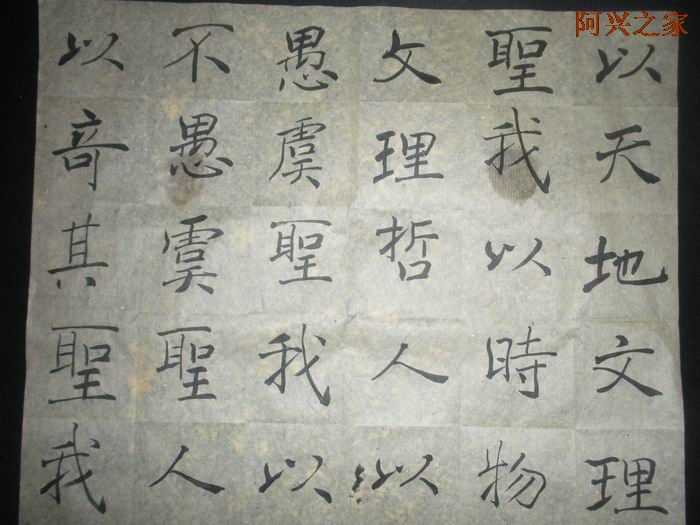 阿兴之家
以天地文理
聖我以時物
文理哲人以
愚虞聖我以
不愚虞聖人
以竒其聖我